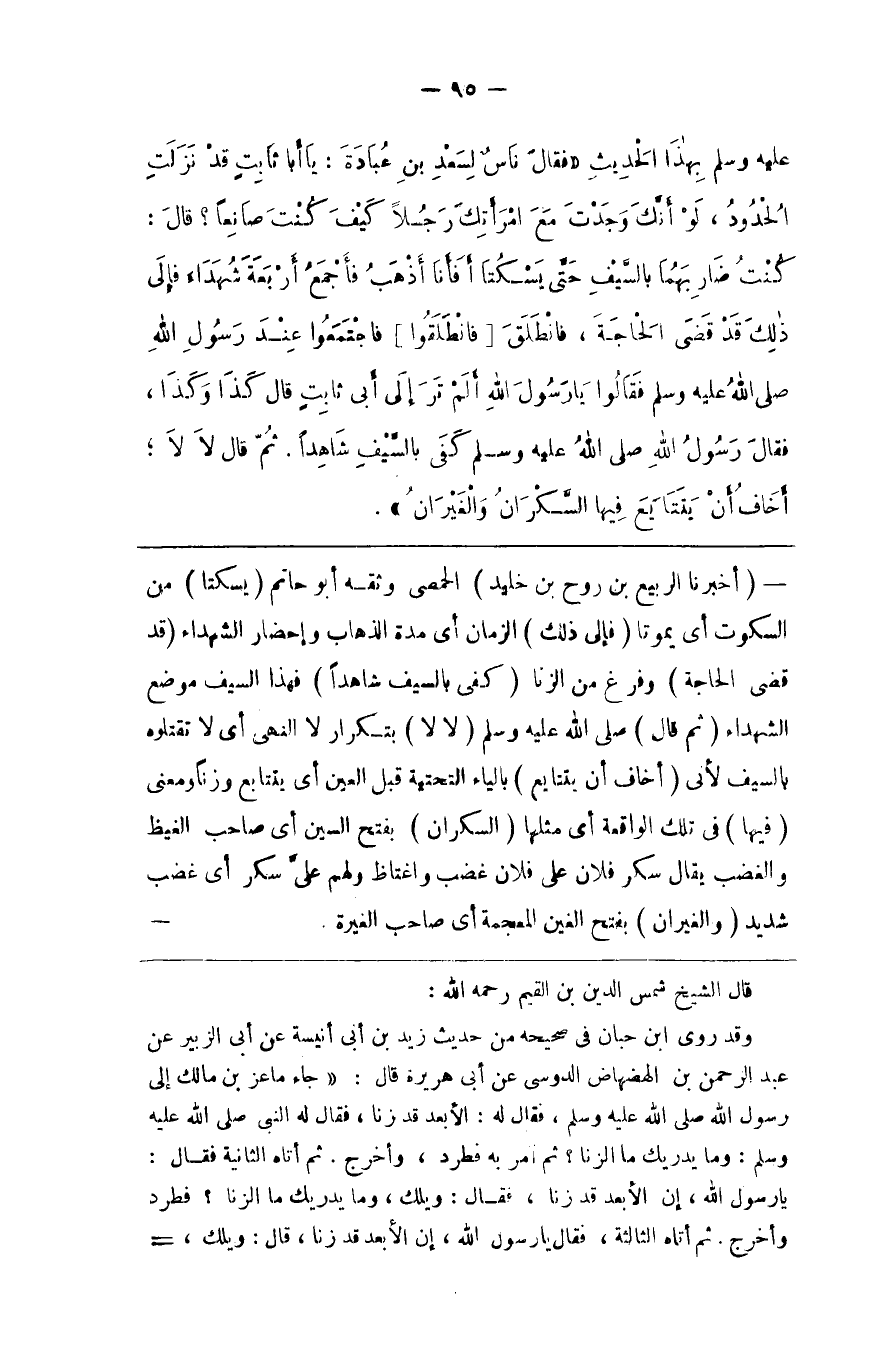 — ٩٥ —
عليه وسلم بِهٰذَا الْحَدِيثِ «فقالَ نَاسٌ لِسَعْدِ بنِ عُبَادَةَ : يَاأَبَا ثَابِتٍ قَدْ نَزَلَتِ
الْحُدُودُ ، لَوْ أَنَّكَ وَجَدْتَ مَعَ امْرَأَتِكَ رَجُلاً كَيْفَ كُنْتَ صَانِعاً ؟ قالَ :
كُنْتُ ضَارِبَهُمَا بالسَّيْفِ حَتَّى يَسْكُتَا أَفَأَنَا أَذْهَبُ فأَجْمَعُ أَرْبَعَةَ شُهَدَاء فإِلَى
ذٰلِكَ قَدْ قَضَى الْحَاجَةَ ، فانْطَلَقَ [ فانْطَلَقُوا ] فاجْتَمَعُوا عِنْدَ رَسُولِ اللهِ
صلى اللهُ عليه وسلم فَقَالُوا يَارَسُولَ اللهِ أَلَمْ تَرَ إِلَى أبى ثابِتٍ قال كَذَا وَكَذَا ،
فقالَ رَسُولُ اللهِ صلى اللهُ عليه وسلم كَفَى بالسَّيْفِ شَاهِداً . ثُمّ قال لاَ لاَ ؛
أَخَافُ أَنْ يَتَتَايَعَ فِيها السَّكْرَانُ وَالْغَيْرَانُ » .
— ( أخبرنا الربيع بن روح بن خليد ) الحمصى وثقه أبو حاتم ( يسكتا ) من
السكوت أى يموتا ( فإلى ذلك ) الزمان أى مدة الذهاب وإحضار الشهداء (قد
قضى الحاجة ) وفرغ من الزنا ( كفى بالسيف شاهداً ) فهذا السيف موضع
الشهداء ( ثم قال ) صلى الله عليه وسلم ( لا لا ) بتكرار لا النهى أى لا تقتلوه
بالسيف لأنى ( أخاف أن يتتايع ) بالياء التحتية قبل العين أى يتتابع وزناً ومعنى
( فيها ) فى تلك الواقعة أى مثلها ( السكران ) بفتح السين أى صاحب الغيظ
والغضب يقال سكر فلان على فلان غضب واغتاظ ولهم علىَّ سكر أى غضب
شديد ( والغيران ) بفتح الغين المعجمة أى صاحب الغيرة . —
قال الشيخ شمس الدين بن القيم رحمه الله :
وقد روى ابن حبان فى صحيحه من حديث زيد بن أبى أنيسة عن أبى الزبير عن
عبد الرحمن بن الهضهاض الدوسى عن أبى هريرة قال : « جاء ماعز بن مالك إلى
رسول الله صلى الله عليه وسلم ، فقال له : الأبعد قد زنا ، فقال له النبى صلى الله عليه
وسلم : وما يدريك ما الزنا ؟ ثم أمر به فطرد ، وأخرج . ثم أتاه الثانية فقال :
يارسول الله ، إن الأبعد قد زنا ، فقال : ويلك ، وما يدريك ما الزنا ؟ فطرد
وأخرج . ثم أتاه الثالثة ، فقال يارسول الله ، إن الأبعد قد زنا ، قال : ويلك ، =